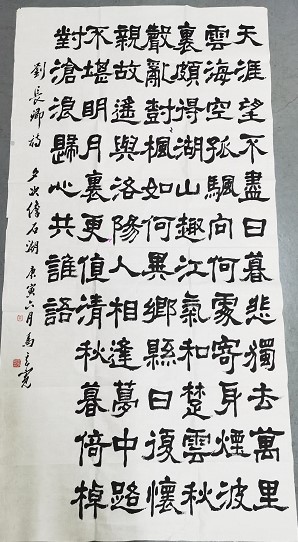 天涯望不盡日暮悲獨去萬里
雲海空孤颿向何處寄身煙波
裏頗得湖山趣江氣和楚雲秋
聲亂對楓如何異鄉縣日復懷
親故遙與洛陽人相逢夢中路
不堪明月裏更值清秋暮倚棹
對滄浪歸心共誰語
劉長卿詩 夕次檐石湖 庚寅六月馬